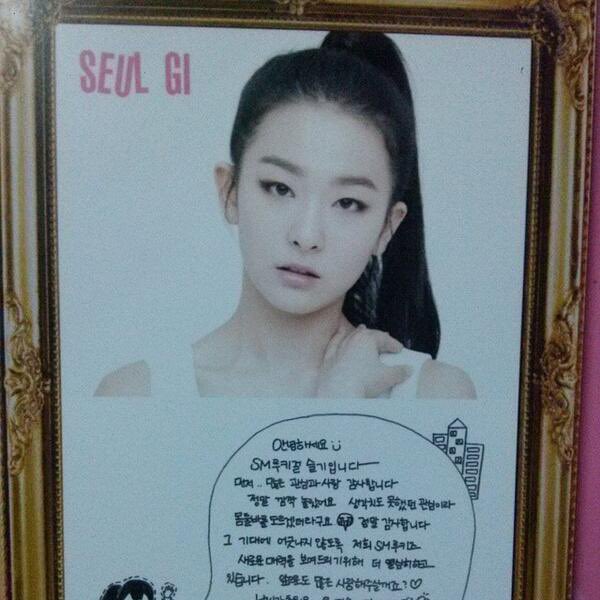 SEUL GI
안녕하세요
SM루키즈 슬기입니다
먼저.. 많은 관심과 사랑 감사합니다
정말 깜짝 놀랐어요 생각치도 못했던 관심이라
몸둘바를 모르겠더라구요 정말 감사합니다
그 기대에 어긋나지 않도록 저희 SM루키즈
새로운 매력을 보여드리기위해 더 열심히하고
있습니다. 앞으로도 많은 사랑해주실꺼죠?♡